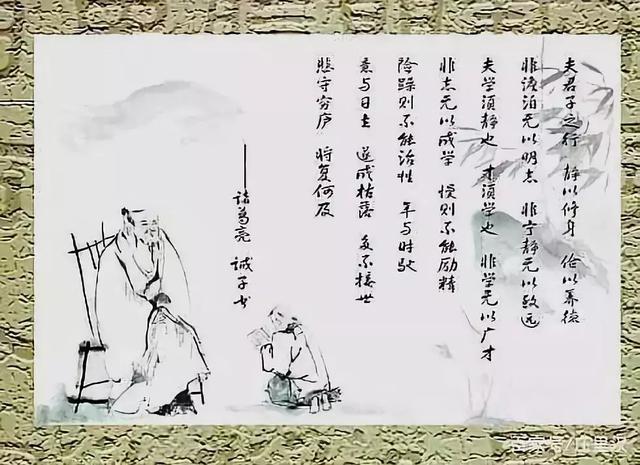 夫君子之行 静以修身 俭以养德
非淡泊无以明志 非宁静无以致远
夫学须静也 才须学也 非学无以广才
非志无以成学 慢则不能励精
险躁则不能治性 年与时驰
意与日去 遂成枯落 多不接世
悲守穷庐 将复何及
——诸葛亮 诫子书
百家号/